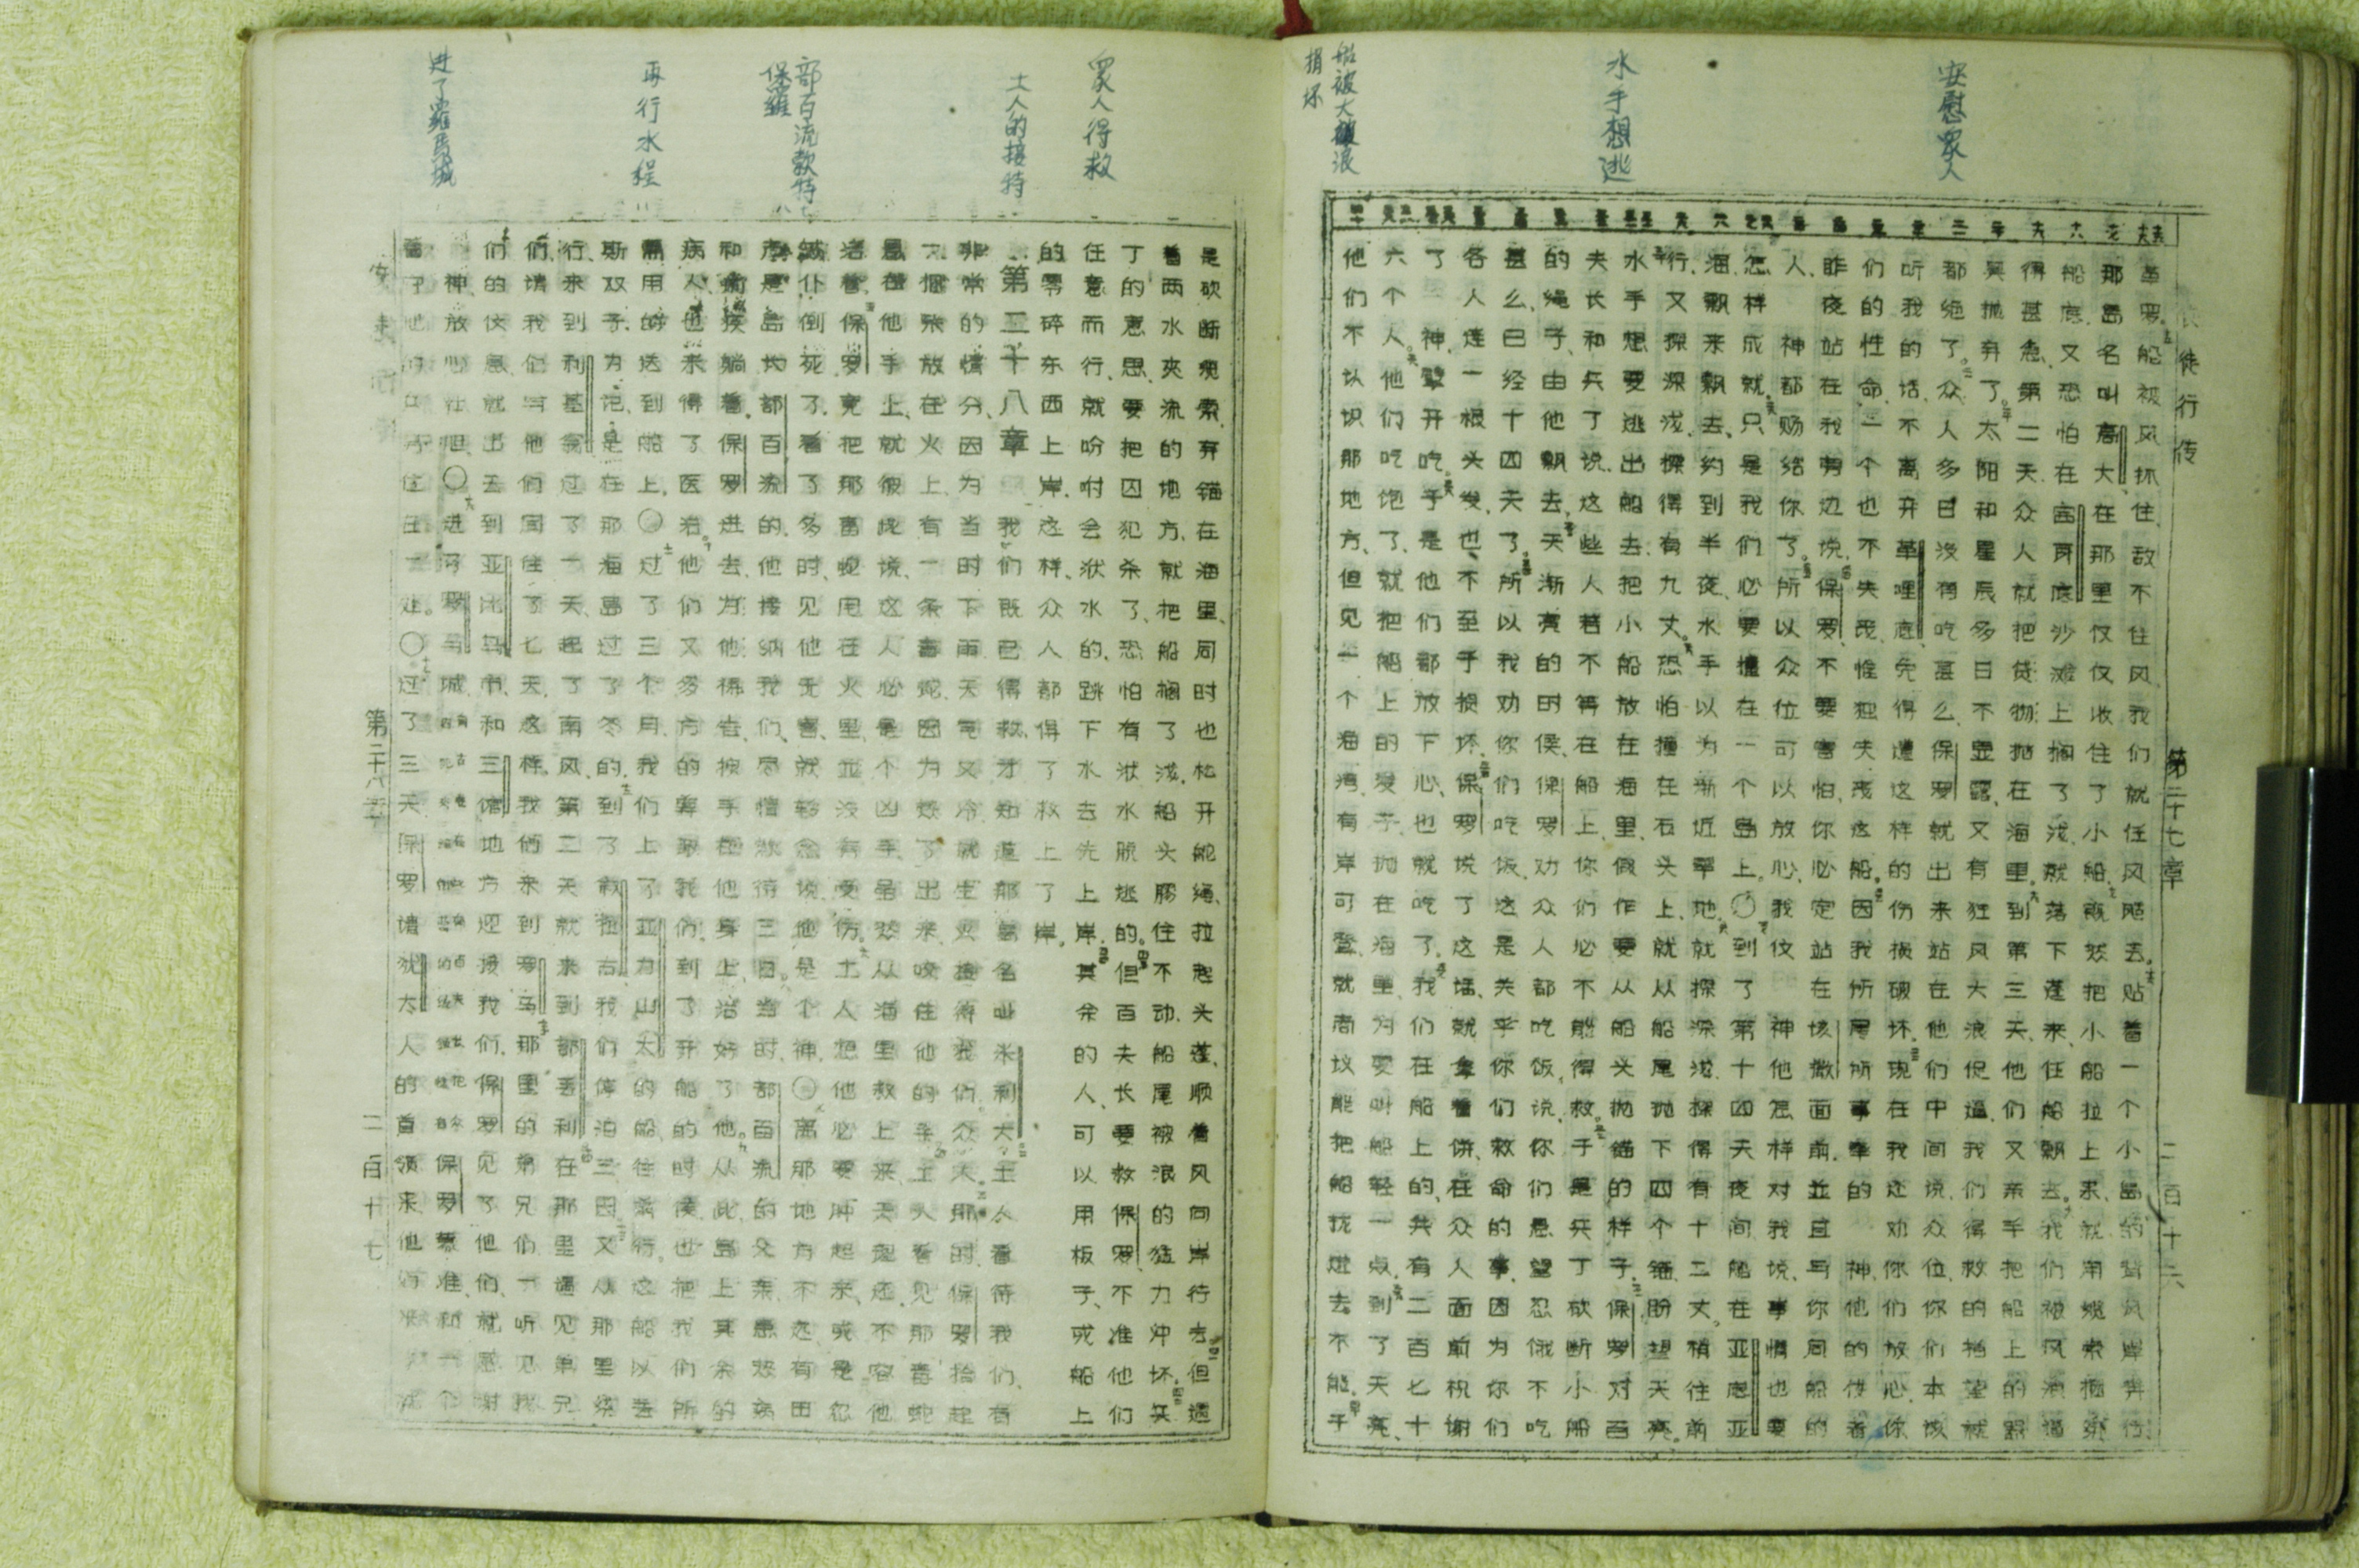 使徒行传
第二十七章
二百十六
安慰眾人
水手想逃
船被大浪
損坏
革罗船被风抓住敌不住风我们就任风飓去贴着一个小岛的背风岸奔行
那岛名叫高大在那里仅仅收住了小船既然把小船拉上来就用缆索捆绑
船底又恐怕在富耳底沙滩上搁了浅就落下蓬来任船飘去我们被风浪逼
得甚急第二天众人就把货物抛在海里到第三天他们又亲手把船上的器
具抛弃了太阳和星辰多日不显露又有狂风大浪促逼我们得救的指望就
都绝了众人多日没有吃甚么保罗就出来站在他们中间说众位你们本该
听我的话不离开革哩底免得遭这样的伤损破坏现在我还劝你们放心你
们的性命一个也不失丧惟独失丧这船因我所属所事奉的 神他的使者
昨夜站在我旁边说保罗不要害怕你必定站在该撒面前並且与你同船的
人 神都赐给你了所以众位可以放心我信 神他怎样对我说事情也要
怎样成就只是我们必要撞在一个岛上〇到了第十四天夜间船在亚底亚
海飘来飘去约到半夜水手以为渐近旱地就探深浅探得有十二丈稍往前
行又探深浅探得有九丈恐怕撞在石头上就从船尾抛下四个锚盼望天亮
水手想要逃出船去把小船放在海里假作要从船头抛锚的样子保罗对百
夫长和兵丁说这些人若不等在船上你们必不能得救于是兵丁砍断小船
的绳子由他飘去天渐亮的时候保罗劝众人都吃饭说你们悬望忍饿不吃
甚么已经十四天了所以我劝你们吃饭这是关乎你们救命的事因为你们
各人连一根头发也不至于损坏保罗说了这话就拿着饼在众人面前祝谢
了 神擘开吃于是他们都放下心也就吃了我们在船上的共有二百七十
六个人他们吃饱了就把船上的麦子抛在海里为要叫船轻一点到了天亮
他们不认识那地方但见一个海湾有岸可登就商议能把船拢进去不能于
眾人得救
土人的接待
部百流款待
保羅
再行水程
进了羅馬城
是砍断缆索弃锚在海里同时也松开舵绳拉起头蓬顺着风向岸行去但遇
着两水夹流的地方就把船搁了浅船头胶住不动船尾被浪的猛力冲坏兵
丁的意思要把囚犯杀了恐怕有洑水脱逃的但百夫长要救保罗不准他们
任意而行就吩咐会洑水的跳下水去先上岸其余的人可以用板子或船上
的零碎东西上岸这样众人都得了救上了岸
第二十八章 我们既已得救才知道那岛名叫米利大土人看待我们有
非常的情分因为当时下雨天气又冷就生火接待我们众人那时保罗拾起
一捆柴放在火上有一条毒蛇因为热了出来咬住他的手土人看见那毒蛇
悬在他手上就彼此说这人必是个凶手虽然从海里救上来天理还不容他
活着保罗竟把那毒蛇甩在火里並没有受伤土人想他必要肿起来或是忽
然仆倒死了看了多时见他无害就转念说他是个神〇离那地方不远有田
产是岛长部百流的他接纳我们尽情款待三日当时部百流的父亲患热病
和痢疾躺着保罗进去为他祷告按手在他身上治好了他从此岛上其余的
病人也来得了医治他们又多方的尊敬我们到了开船的时候也把我们所
需用的送到船上〇过了三个月我们上了亚力山太的船往前行这船以丢
斯双子为记是在那海岛过了冬的到了叙拉古我们停泊三日又从那里绕
行来到利基翁过了一天起了南风第二天就来到部丢利在那里遇见弟兄
们请我们与他们同住了七天这样我们来到罗马那里的弟兄们一听见我
们的信息就出去到亚比乌市和三馆地方迎接我们保罗见了他们就感谢
神放心壮胆〇进了罗马城 保罗蒙准和一个
住在一处〇过了三天保罗请犹太人的首领来他
第二十八章
二百十七